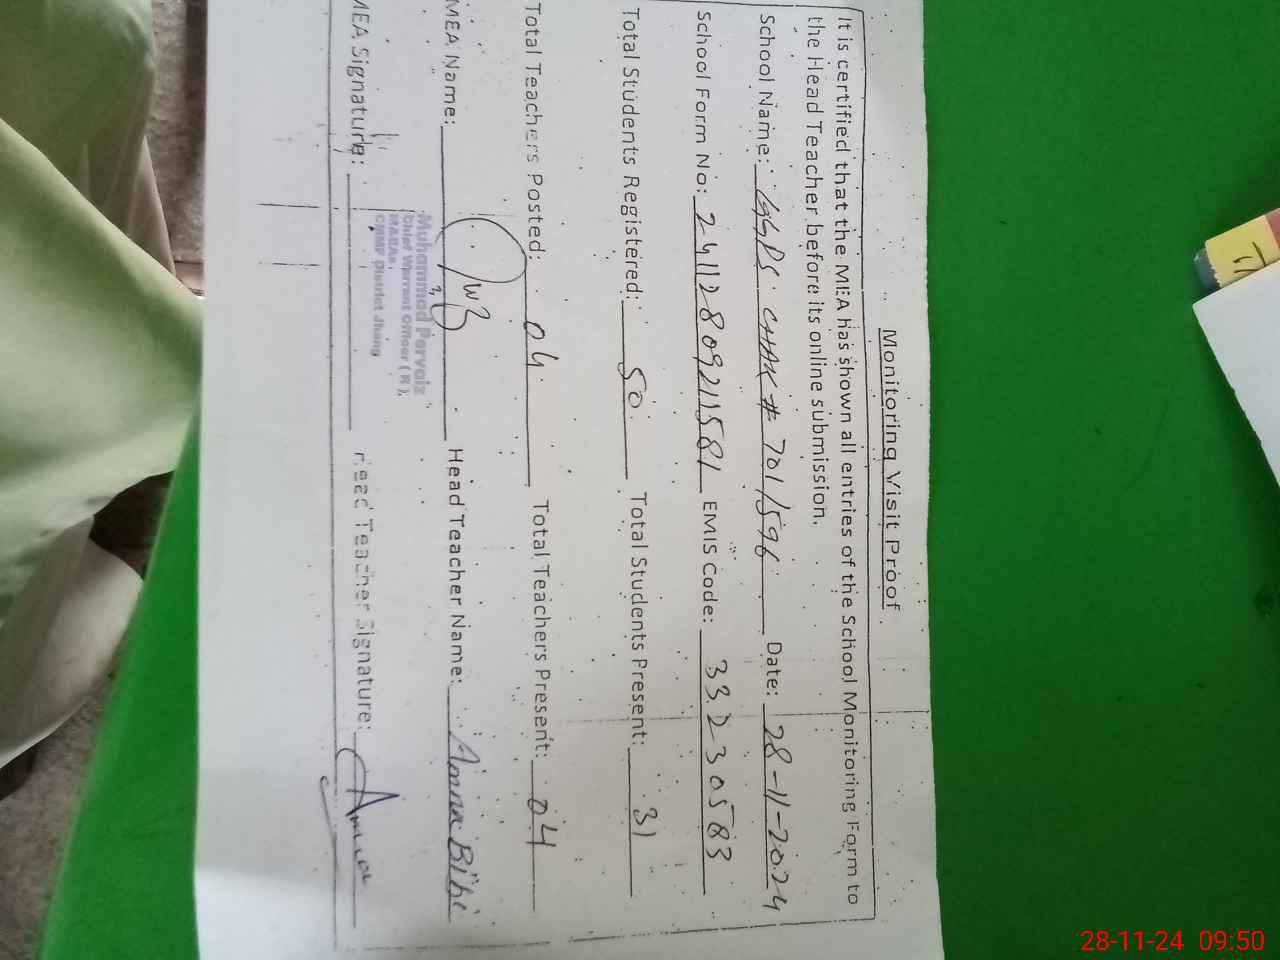 Monitoring Visit Proof
It is certified that the MEA has shown all entries of the School Monitoring Form to
the Head Teacher before its online submission.
School Name: GGPS CHAK # 701/596 Date: 28-11-2024
School Form No: 24112809211581 EMIS Code: 33230583
Total Students Registered: 50 Total Students Present: 31
Total Teachers Posted: 04 Total Teachers Present: 04
MEA Name: Head Teacher Name: Amna Bibi
Muhammad Pervaiz
Chief Warrant Officer (R),
M&EAs
CMMF District Jhang
MEA Signature: Head Teacher Signature: Amna
28-11-24 09:50